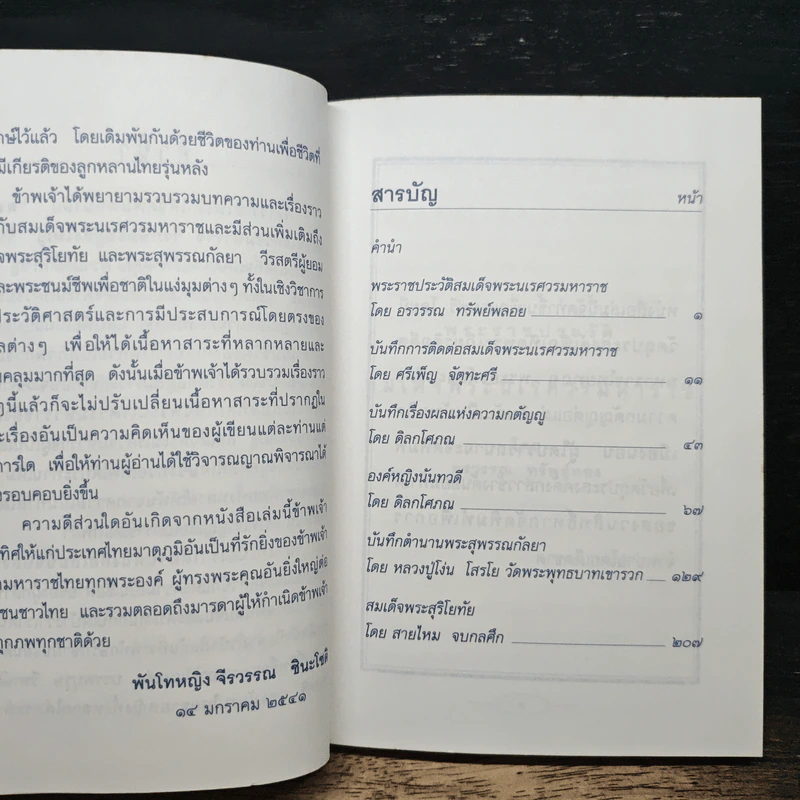 าษ์ไว้แล้ว โดยเดิมพันกันด้วยชีวิตของท่านเพื่อชีวิตที่
มีเกียรติของลูกหลานไทยรุ่นหลัง
ข้าพเจ้าได้พยายามรวบรวมบทความและเรื่องราว
กับสมเด็จพระนเรศวรมหาราชและมีส่วนเพิ่มเติมถึง
จพระสุริโยทัย และพระสุพรรณกัลยา วีรสตรีผู้ยอม
และพระชนม์ชีพเพื่อชาติในแง่มุมต่างๆ ทั้งในเชิงวิชาการ
ประวัติศาสตร์และการมีประสบการณ์โดยตรงของ
ลต่างๆ เพื่อให้ได้เนื้อหาสาระที่หลากหลายและ
บคลุมมากที่สุด ดังนั้นเมื่อข้าพเจ้าได้รวบรวมเรื่องราว
ๆนี้แล้วก็จะไม่ปรับเปลี่ยนเนื้อหาสาระที่ปรากฏใน
ะเรื่องอันเป็นความคิดเห็นของผู้เขียนแต่ละท่านแต่
การใด เพื่อให้ท่านผู้อ่านได้ใช้วิจารณญาณพิจารณาได้
งรอบคอบยิ่งขึ้น
ความดีส่วนใดอันเกิดจากหนังสือเล่มนี้ข้าพเจ้า
ทิศให้แก่ประเทศไทยมาตุภูมิอันเป็นที่รักยิ่งของข้าพเจ้า
ามหาราชไทยทุกพระองค์ ผู้ทรงพระคุณอันยิ่งใหญ่ต่อ
ชนชาวไทย และรวมตลอดถึงมารดาผู้ให้กำเนิดข้าพเจ้า
ทุกภพทุกชาติด้วย
พันโทหญิง จีรวรรณ ชินะโชติ
๑๔ มกราคม ๒๕๔๑
สารบัญ หน้า
คำนำ
พระราชประวัติสมเด็จพระนเรศวรมหาราช
โดย อรวรรณ ทรัพย์พลอย ๑
บันทึกการติดต่อสมเด็จพระนเรศวรมหาราช
โดย ศรีเพ็ญ จัตุทะศรี ๑๑
บันทึกเรื่องผลแห่งความกตัญญู
โดย ดิลกโศภณ ๔๓
องค์หญิงนันทวดี
โดย ดิลกโศภณ ๖๗
บันทึกตำนานพระสุพรรณกัลยา
โดย หลวงปู่โง่น โสรโย วัดพระพุทธบาทเขารวก ๑๒๙
สมเด็จพระสุริโยทัย
โดย สายไหม จบกลศึก ๒๐๗